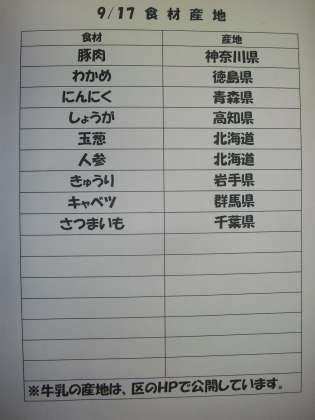 9/17 食材産地
食材 産地
豚肉 神奈川県
わかめ 徳島県
にんにく 青森県
しょうが 高知県
玉葱 北海道
人参 北海道
きゅうり 岩手県
キャベツ 群馬県
さつまいも 千葉県
※牛乳の産地は、区のHPで公開しています。